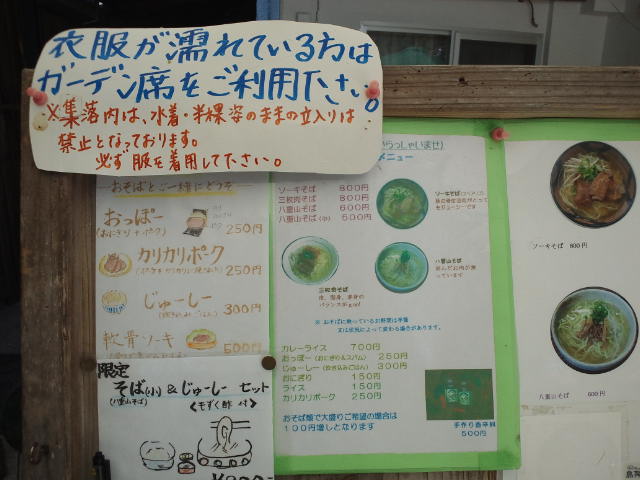 衣服が濡れている方は
ガーデン席をご利用下さい。
※集落内は、水着・半裸姿のままの立入りは
禁止となっております。
必ず服を着用して下さい。
おそばとご一緒にどうぞ
おっぽー
(おにぎり+ポーク)
250円
カリカリポーク
250円
じゅーしー
300円
軟骨ソーキ
500円
限定
そば(小)&じゅーしーセット
(八重山そば)
<もずく酢 付>
いらっしゃいませ)
メニュー
ソーキそば 800円
三枚肉そば 800円
八重山そば 600円
八重山そば(小) 500円
ソーキそば
三枚肉そば
皮、脂身、赤身の
バランスがgood
八重山そば
刻んだお肉が乗
っています
※ おそばに乗っているお野菜は季節
又は状況によって変わる場合があります。
カレーライス 700円
おっぽー(おにぎり&スパム) 250円
じゅーしー(炊き込みごはん) 300円
おにぎり 150円
ライス 150円
カリカリポーク 250円
おそば類で大盛りご希望の場合は
100円増しとなります
手作り島辛麺
500円
ソーキそば 800円
八重山そば 600円